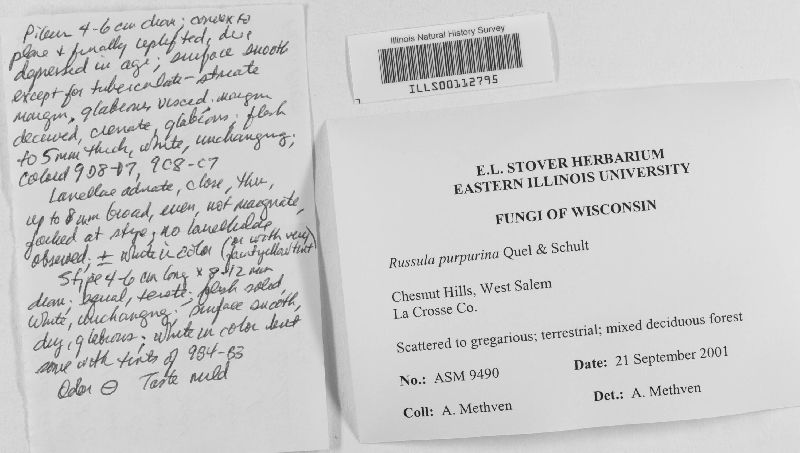 Pileus 4-6 cm diam; convex to
plane & finally uplifted, disc
depressed in age; surface smooth
except for tuberculate-striate
margin, glabrous, viscid; margin
decurved, crenate, glabrous; flesh
to 5mm thick, white, unchanging;
colored 9D8-D7, 9C8-C7
Lamellae adnate, close, thin,
up to 8 mm broad, even, not marginate,
forked at stipe, no lamellulae
observed; ± white in color (or with very
faint yellow tint
Stipe 4-6 cm long x 8-12 mm
diam; equal, terete; flesh solid,
white, unchanging; surface smooth,
dry, glabrous; white in color but
some with tints of 9B4-B3
Odor ⊖ Taste mild
Illinois Natural History Survey
ILLS00112795
E.L. STOVER HERBARIUM
EASTERN ILLINOIS UNIVERSITY
FUNGI OF WISCONSIN
Russula purpurina Quel & Schult
Chesnut Hills, West Salem
La Crosse Co.
Scattered to gregarious; terrestrial; mixed deciduous forest
No.: ASM 9490 Date: 21 September 2001
Coll: A. Methven Det.: A. Methven